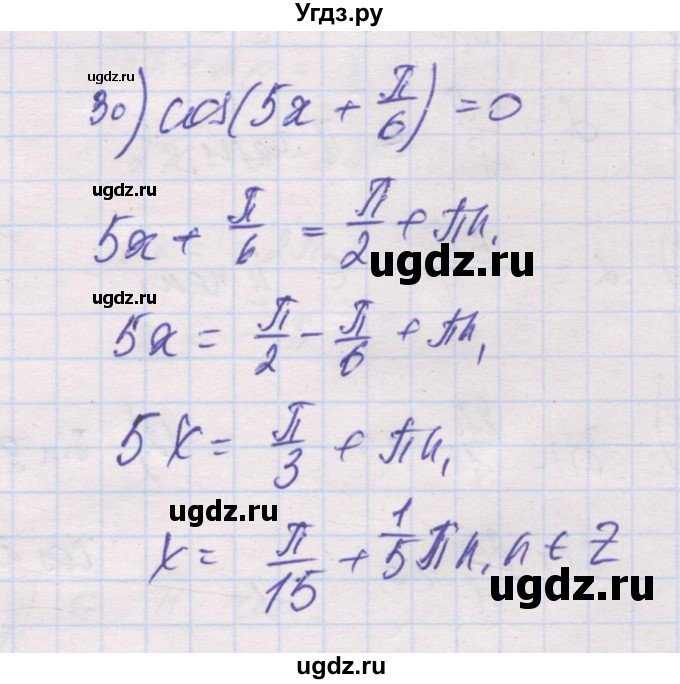 Угдз.ру
ugdz.ru
30) cos(5x + π/6) = 0
ugdz.ru
5x + π/6 = π/2 + πn,
ugdz.ru
ugdz.ru
5x = π/2 - π/6 + πn,
5x = π/3 + πn,
ugdz.ru
x = π/15 + 1/5 πn, n ∈ Z
ugdz.ru
ugdz.ru